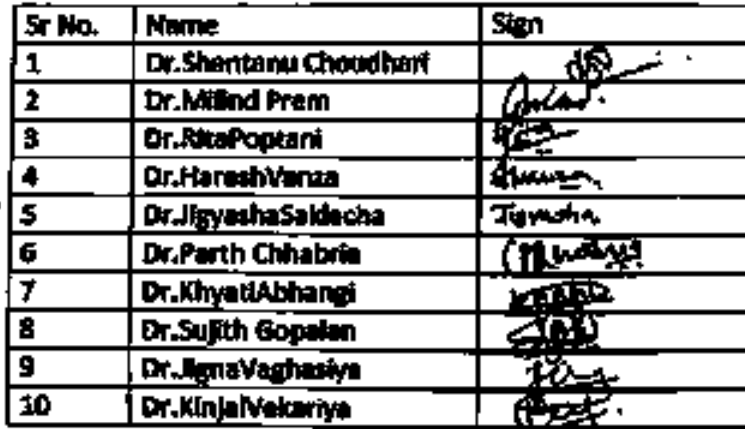 Sr No. Name Sign
1 Dr.Shantanu Choudhari
2 Dr.Milind Prem
3 Dr.RitaPoptani
4 Dr.HareshVanza
5 Dr.JigyashaSaldacha Jigyasha
6 Dr.Parth Chhabria
7 Dr.KhyatiAbhangi
8 Dr.Sujith Gopalan
9 Dr.JignaVaghasiya
10 Dr.KinjalVekariya